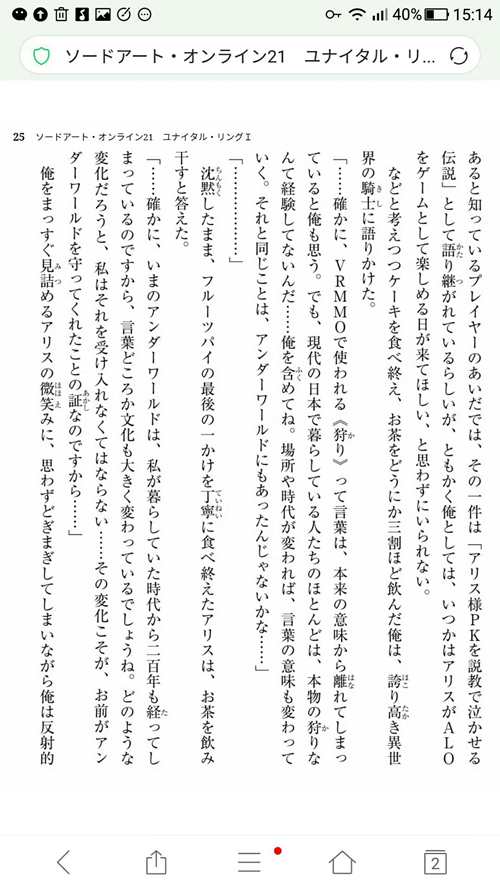 40% 15:14
ソードアート・オンライン21 ユナイタル・リ...
25 ソードアート・オンライン21 ユナイタル・リングⅠ
あると知っているプレイヤーのあいだでは、その一件は「アリス様PKを説教で泣かせる
伝説」として語り継がれているらしいが、ともかく俺としては、いつかはアリスがALO
をゲームとして楽しめる日が来てほしい、と思わずにいられない。
などと考えつつケーキを食べ終え、お茶をどうにか三割ほど飲んだ俺は、誇り高き異世
界の騎士に語りかけた。
「……確かに、VRMMOで使われる《狩り》って言葉は、本来の意味から離れてしまっ
ていると俺も思う。でも、現代の日本で暮らしている人たちのほとんどは、本物の狩りな
んて経験してないんだ……俺を含めてね。場所や時代が変われば、言葉の意味も変わって
いく。それと同じことは、アンダーワールドにもあったんじゃないかな……」
「………………」
沈黙したまま、フルーツパイの最後の一かけを丁寧に食べ終えたアリスは、お茶を飲み
干すと答えた。
「……確かに、いまのアンダーワールドは、私が暮らしていた時代から二百年も経ってし
まっているのですから、言葉どころか文化も大きく変わっているでしょうね。どのような
変化だろうと、私はそれを受け入れなくてはならない……その変化こそが、お前がアン
ダーワールドを守ってくれたことの証なのですから……」
俺をまっすぐ見詰めるアリスの微笑みに、思わずどぎまぎしてしまいながら俺は反射的
2